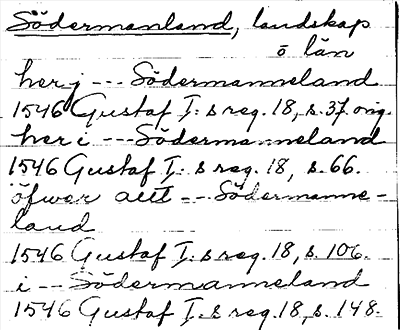 Södermanland, landskap
o län
her j --- Södermanneland
1546 Gustaf I:s reg. 18, s. 37. orig.
her i --- Södermanneland
1546 Gustaf I:s reg. 18, s. 66.
öfwer altt --- Södermanne-
land
1546 Gustaf I:s reg. 18, s. 106.
i --- Södermanneland
1546 Gustaf I:s reg. 18, s. 148.